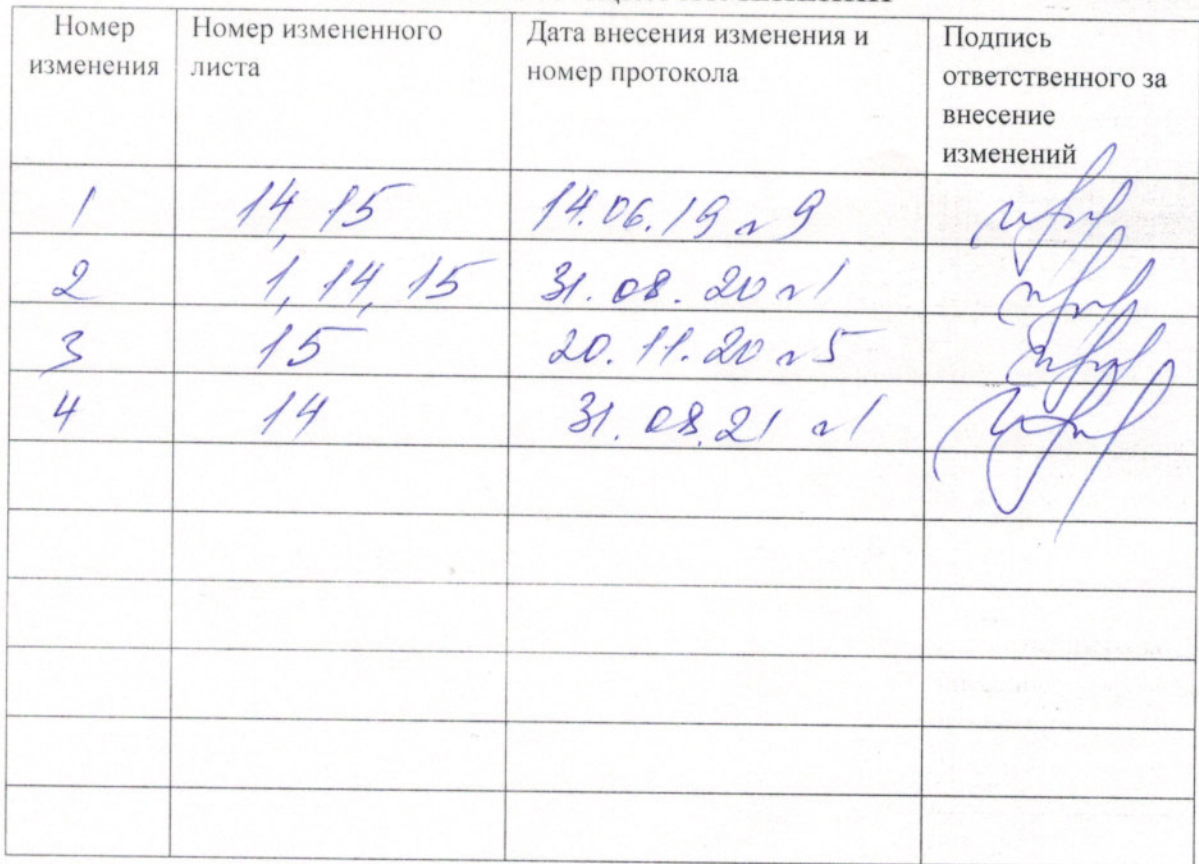 Номер
изменения
Номер измененного
листа
Дата внесения изменения и
номер протокола
Подпись
ответственного за
внесение
изменений
1 14, 15 14.06.19 № 9
2 1, 14, 15 31.08.20 № 1
3 15 20.11.20 № 5
4 14 31.08.21 № 1